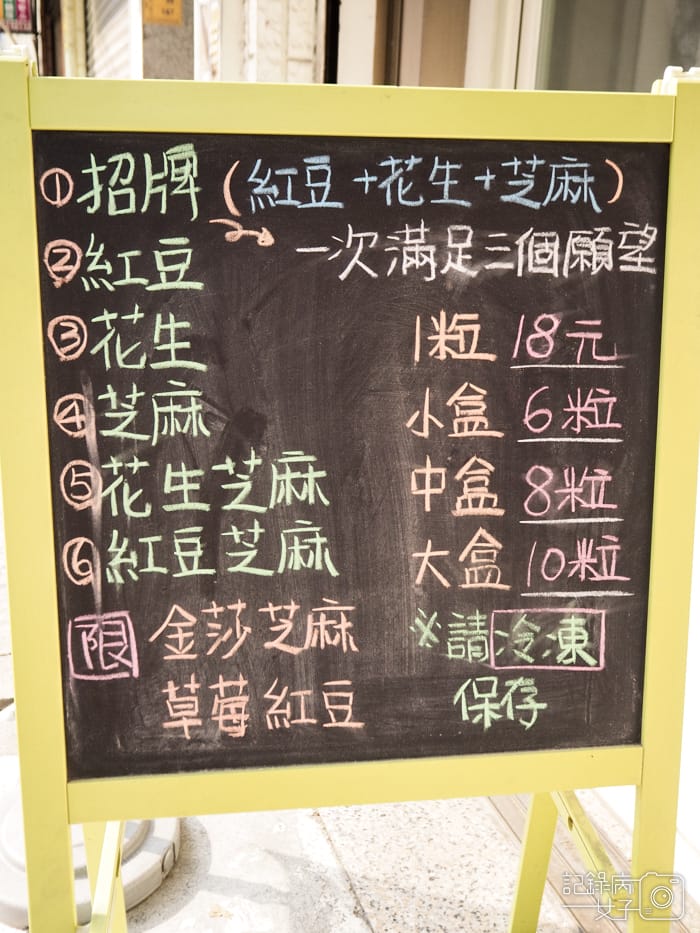 ①招牌(紅豆+花生+芝麻)
一次滿足三個願望
②紅豆
③花生
④芝麻
⑤花生芝麻
⑥紅豆芝麻
限 金莎芝麻
草莓紅豆
1粒 18元
小盒 6粒
中盒 8粒
大盒 10粒
※請冷凍
保存
記錄丙
女子